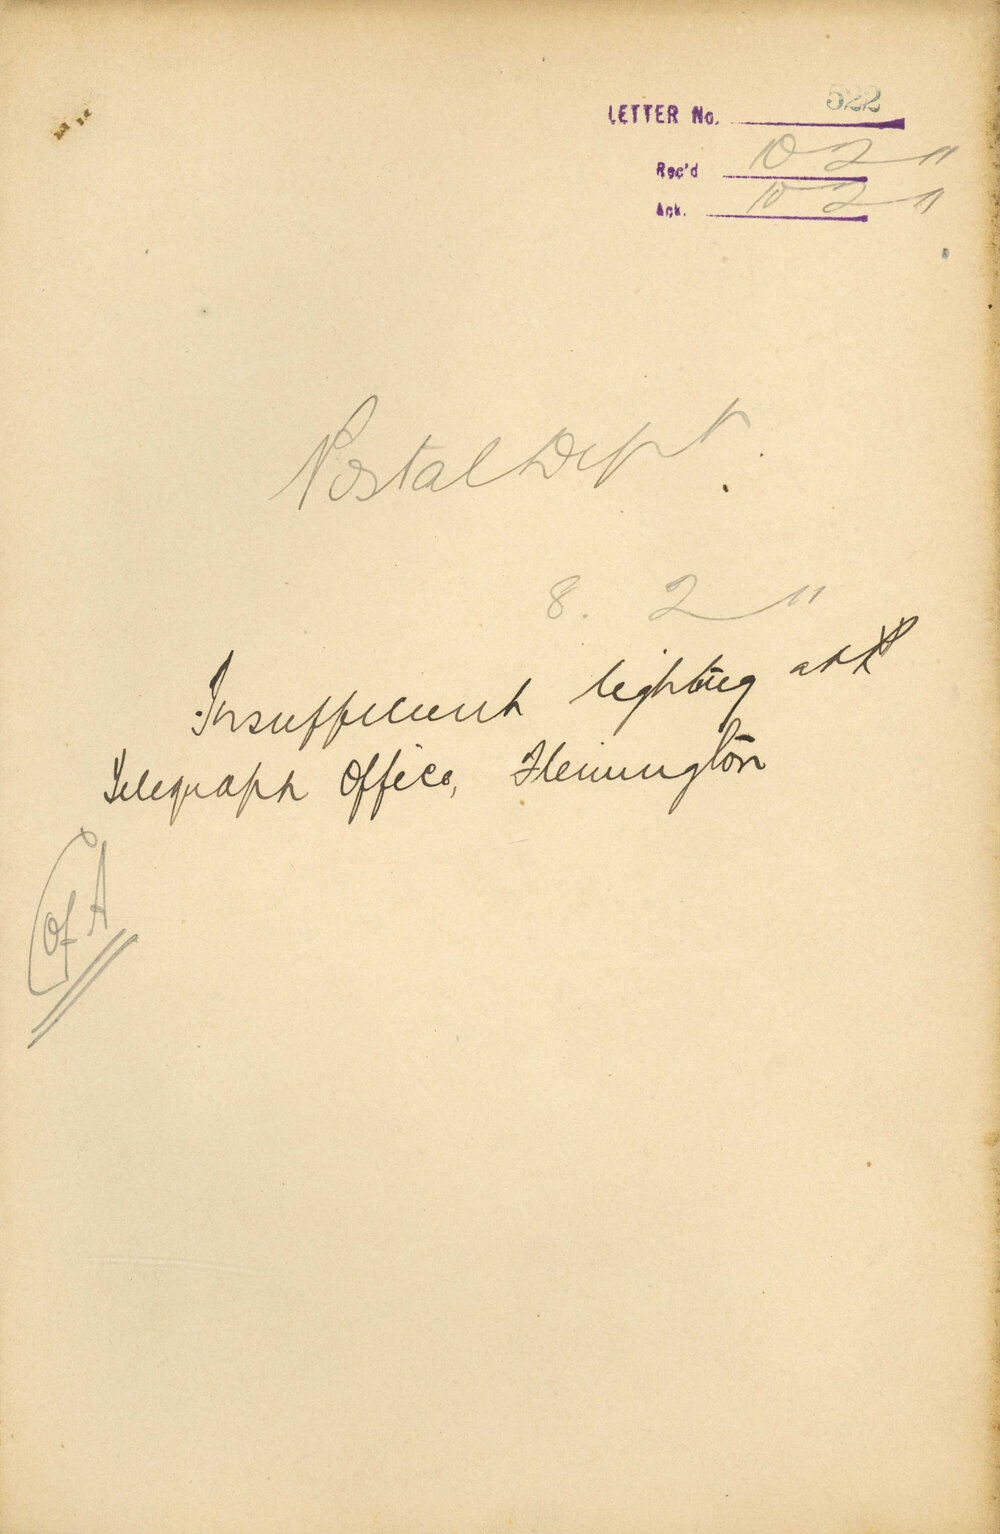 LETTER No. 522
Rec'd 10 2 11
Ack. 10 2 11
Postal Dept.
8. 2 11
Insufficient lighting at
Telegraph Office, Flemington
C of A